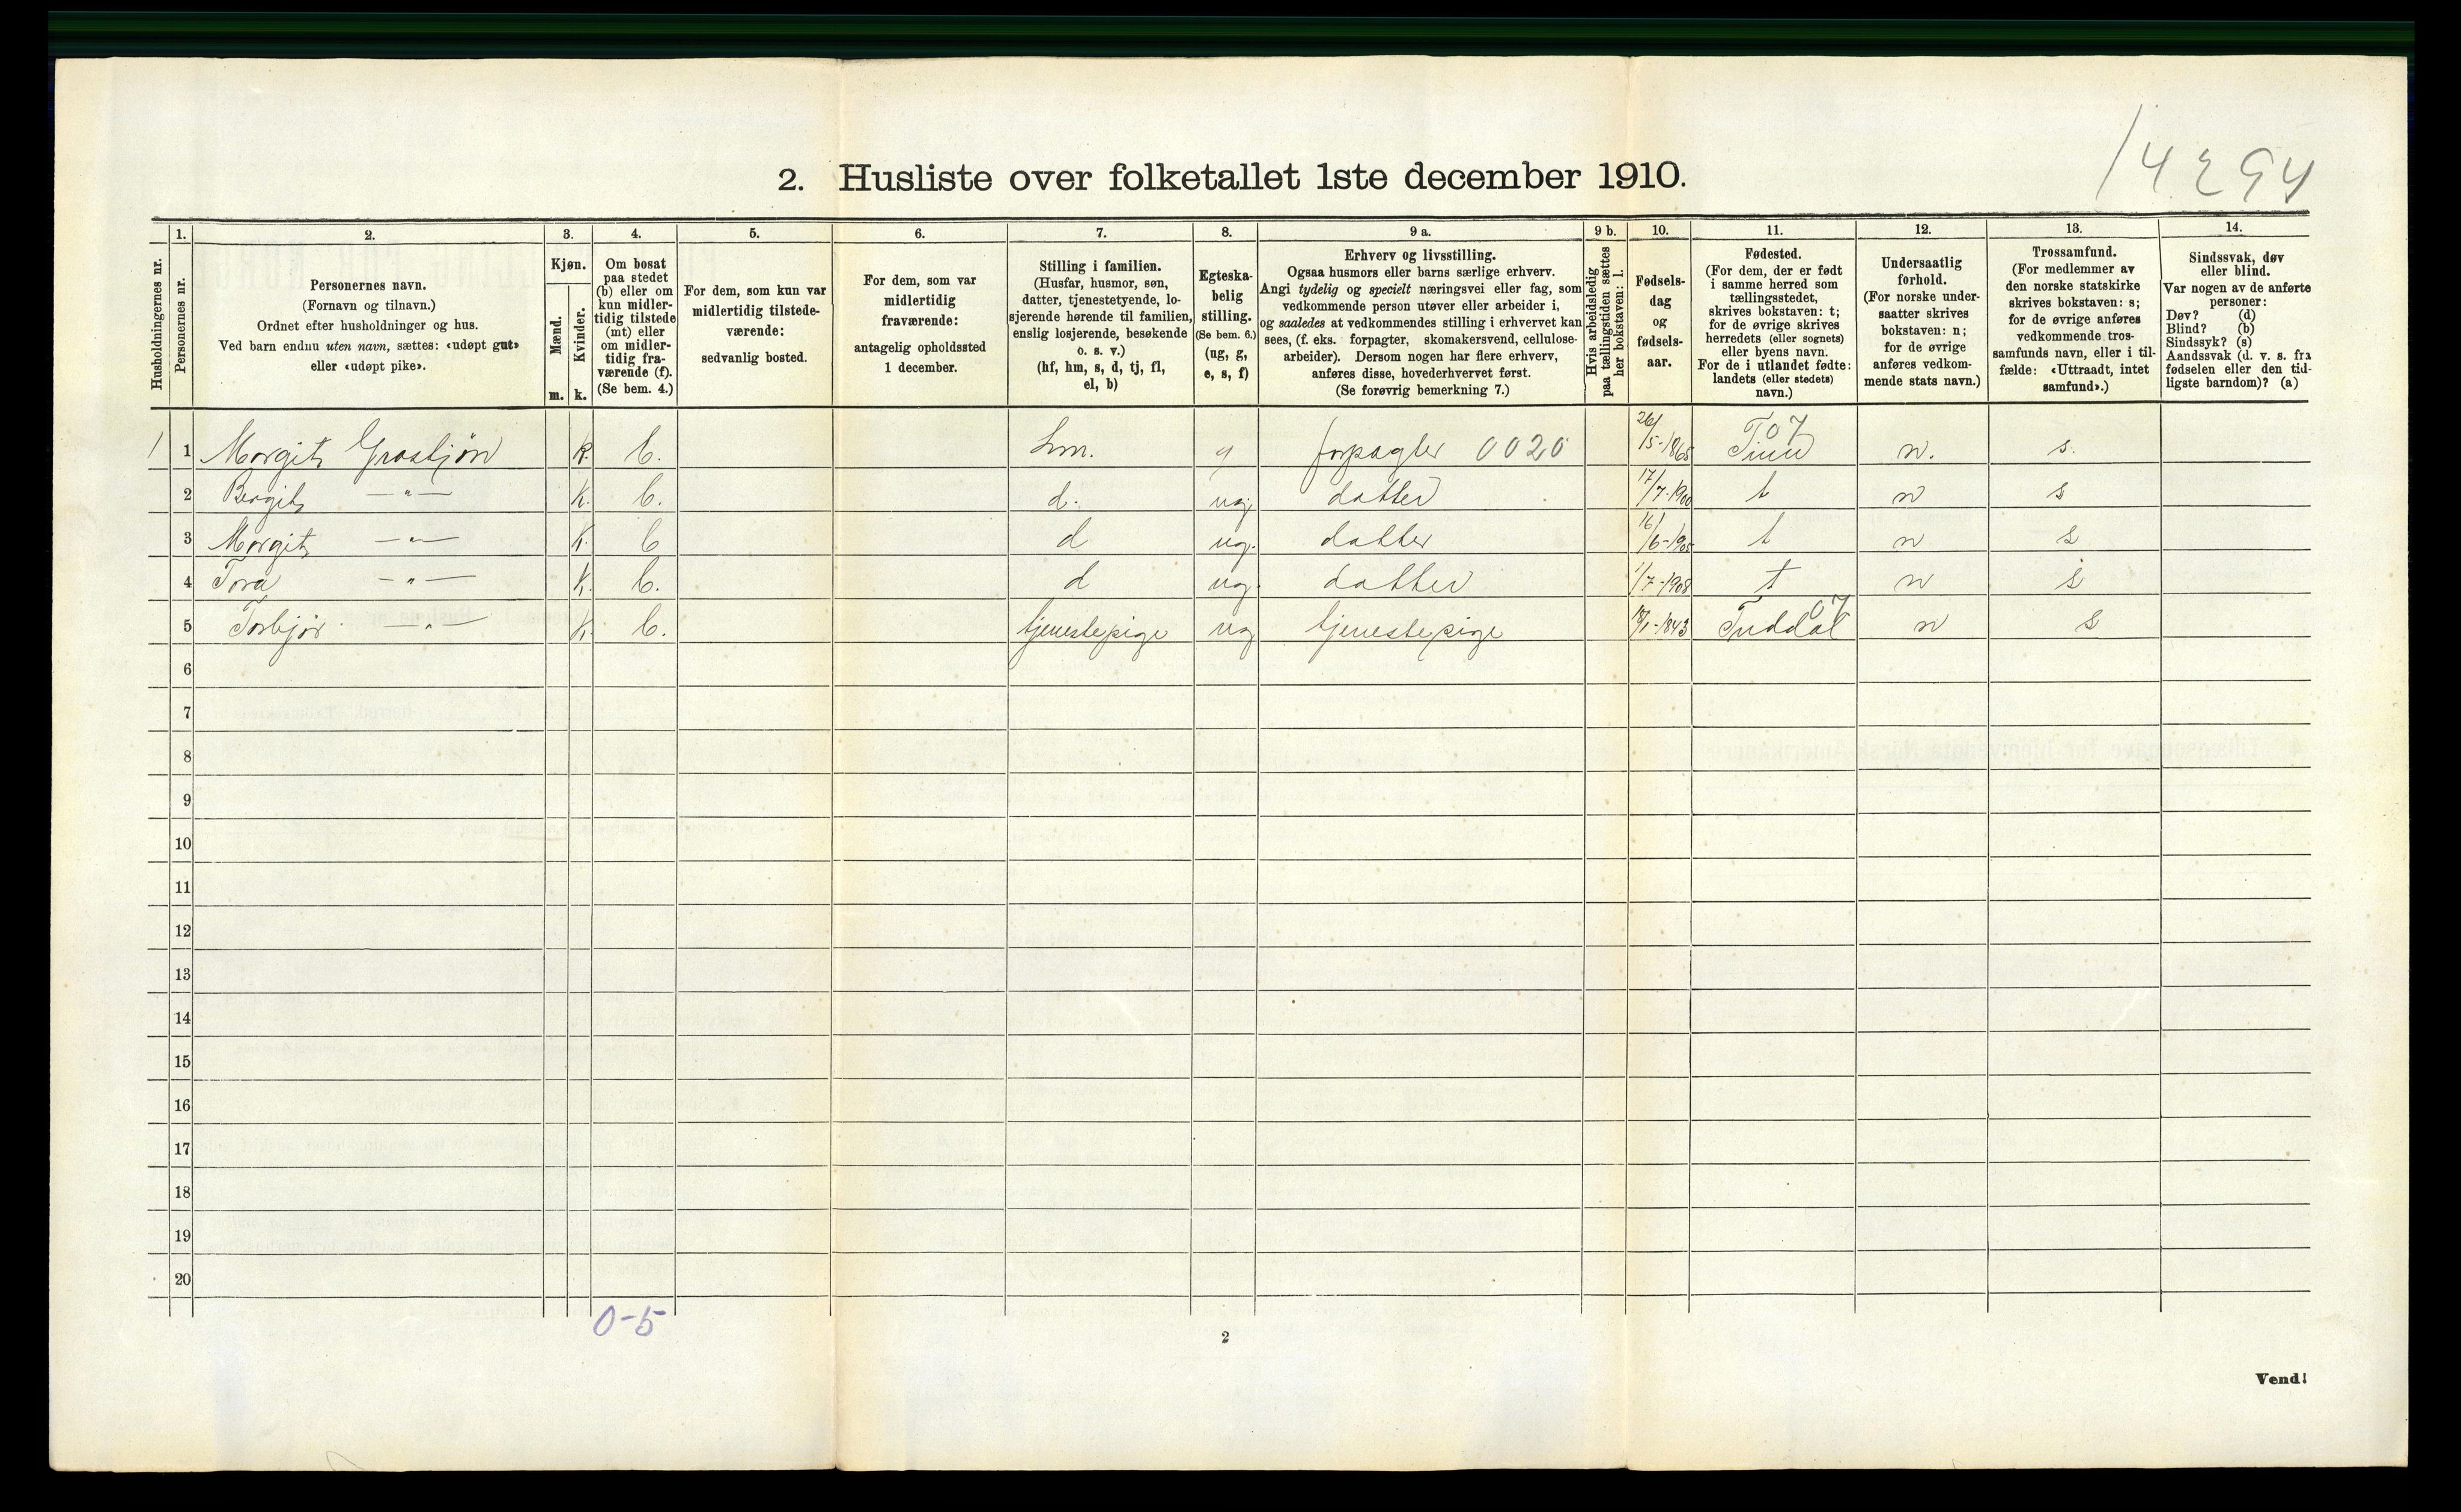 14294
2. Husliste over folketallet 1ste december 1910.
Husholdningernes nr.
1.
Personernes nr.
2.
Personernes navn.
(Fornavn og tilnavn.)
Ordnet efter husholdninger og hus.
Ved barn endnu uten navn, sættes: «udøpt gut»
eller «udøpt pike».
3.
Kjøn.
Mænd.
Kvinder.
m. k.
4.
Om bosat
paa stedet
(b) eller om
kun midler-
tidig tilstede
(mt) eller
om midler-
tidig fra-
værende (f).
(Se bem. 4.)
5.
For dem, som kun var
midlertidig tilstede-
værende:
sedvanlig bosted.
6.
For dem, som var
midlertidig
fraværende:
antagelig opholdssted
1 december.
7.
Stilling i familien.
(Husfar, husmor, søn,
datter, tjenestetyende, lo-
sjerende hørende til familien,
enslig losjerende, besøkende
o. s. v.)
(hf, hm, s, d, tj, fl,
el, b)
8.
Egteska-
belig
stilling.
(Se bem. 6.)
(ug, g,
e, s, f)
9 a.
Erhverv og livsstilling.
Ogsaa husmors eller barns særlige erhverv.
Angi tydelig og specielt næringsvei eller fag, som
vedkommende person utøver eller arbeider i,
og saaledes at vedkommendes stilling i erhvervet kan
sees, (f. eks. forpagter, skomakersvend, cellulose-
arbeider). Dersom nogen har flere erhverv,
anføres disse, hovederhvervet først.
(Se forøvrig bemerkning 7.)
9 b.
Hvis arbeidsledig
paa tællingstiden sættes
her bokstaven: l.
10.
Fødsels-
dag
og
fødsels-
aar.
11.
Fødested.
(For dem, der er født
i samme herred som
tællingsstedet,
skrives bokstaven: t;
for de øvrige skrives
herredets (eller sognets)
eller byens navn.
For de i utlandet fødte:
landets (eller stedets)
navn.)
12.
Undersaatlig
forhold.
(For norske under-
saatter skrives
bokstaven: n;
for de øvrige
anføres vedkom-
mende stats navn.)
13.
Trossamfund.
(For medlemmer av
den norske statskirke
skrives bokstaven: s;
for de øvrige anføres
vedkommende tros-
samfunds navn, eller i til-
fælde: «Uttraadt, intet
samfund».)
14.
Sindssvak, døv
eller blind.
Var nogen av de anførte
personer:
Døv? (d)
Blind? (b)
Sindssyk? (s)
Aandssvak (d. v. s. fra
fødselen eller den tid-
ligste barndom)? (a)
1 1 Morgit Grastjøn k. b. hm. g forpagter 0020 26/5-1865 Tinn 07 n. s.
2 Bergit —"— k. b. d. ug. datter 17/7-1900 t n s
3 Morgit —"— k. b d ug. datter 16/6-1905 t n s
4 Tora —"— k. b. d ug. datter 1/7-1908 t n s
5 Torbjør —"— k. b. tjenestepige ug tjenestepige 18/1-1843 Tuddal 07 n s
6
7
8
9
10
11
12
13
14
15
16
17
18
19
20
0-5
2
Vend!